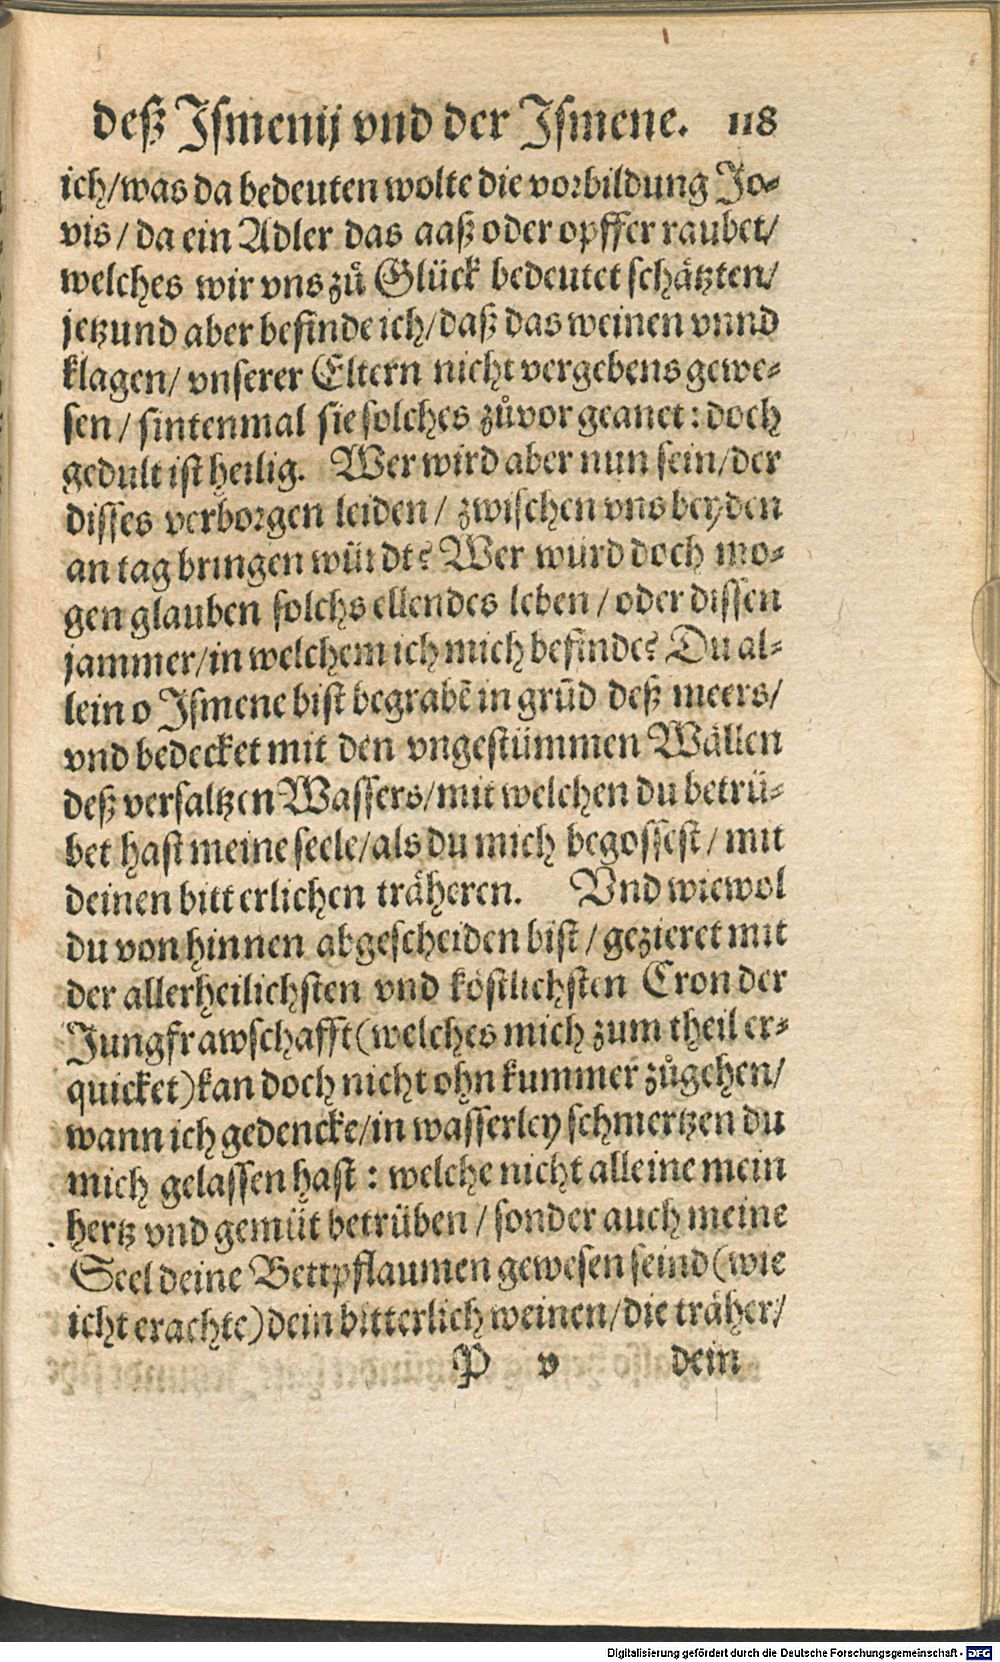 deß Ismenij vnd der Ismene. 118
ich/was da bedeuten wolte die vorbildung Jo-
vis / da ein Adler das aaß oder opffer raubet/
welches wir vns zů Glück bedeutet schätzten/
jetzund aber befinde ich/daß das weinen vnnd
klagen/ vnserer Eltern nicht vergebens gewe-
sen / sintenmal sie solches zůvor geanet: doch
gedult ist heilig. Wer wird aber nun sein/der
disses verborgen leiden / zwischen vns beyden
an tag bringen würdt? Wer würd doch mo-
gen glauben solchs ellendes leben / oder dissen
jammer/in welchem ich mich befinde? Du al-
lein o Ismene bist begrabē in grūd deß meers/
vnd bedecket mit den vngestümmen Wällen
deß versaltzen Wassers/mit welchen du betrü-
bet hast meine seele/als du mich begossest / mit
deinen bitterlichen träheren. Vnd wiewol
du von hinnen abgescheiden bist / gezieret mit
der allerheilichsten vnd köstlichsten Cron der
Jungfrawschafft(welches mich zum theil er-
quicket)kan doch nicht ohn kummer zůgehen/
wann ich gedencke/in wasserley schmertzen du
mich gelassen hast : welche nicht alleine mein
hertz vnd gemüt betrüben / sonder auch meine
Seel deine Bettpflaumen gewesen seind(wie
icht erachte)dein bitterlich weinen/die träher/
P v dein
Digitalisierung gefördert durch die Deutsche Forschungsgemeinschaft - DFG